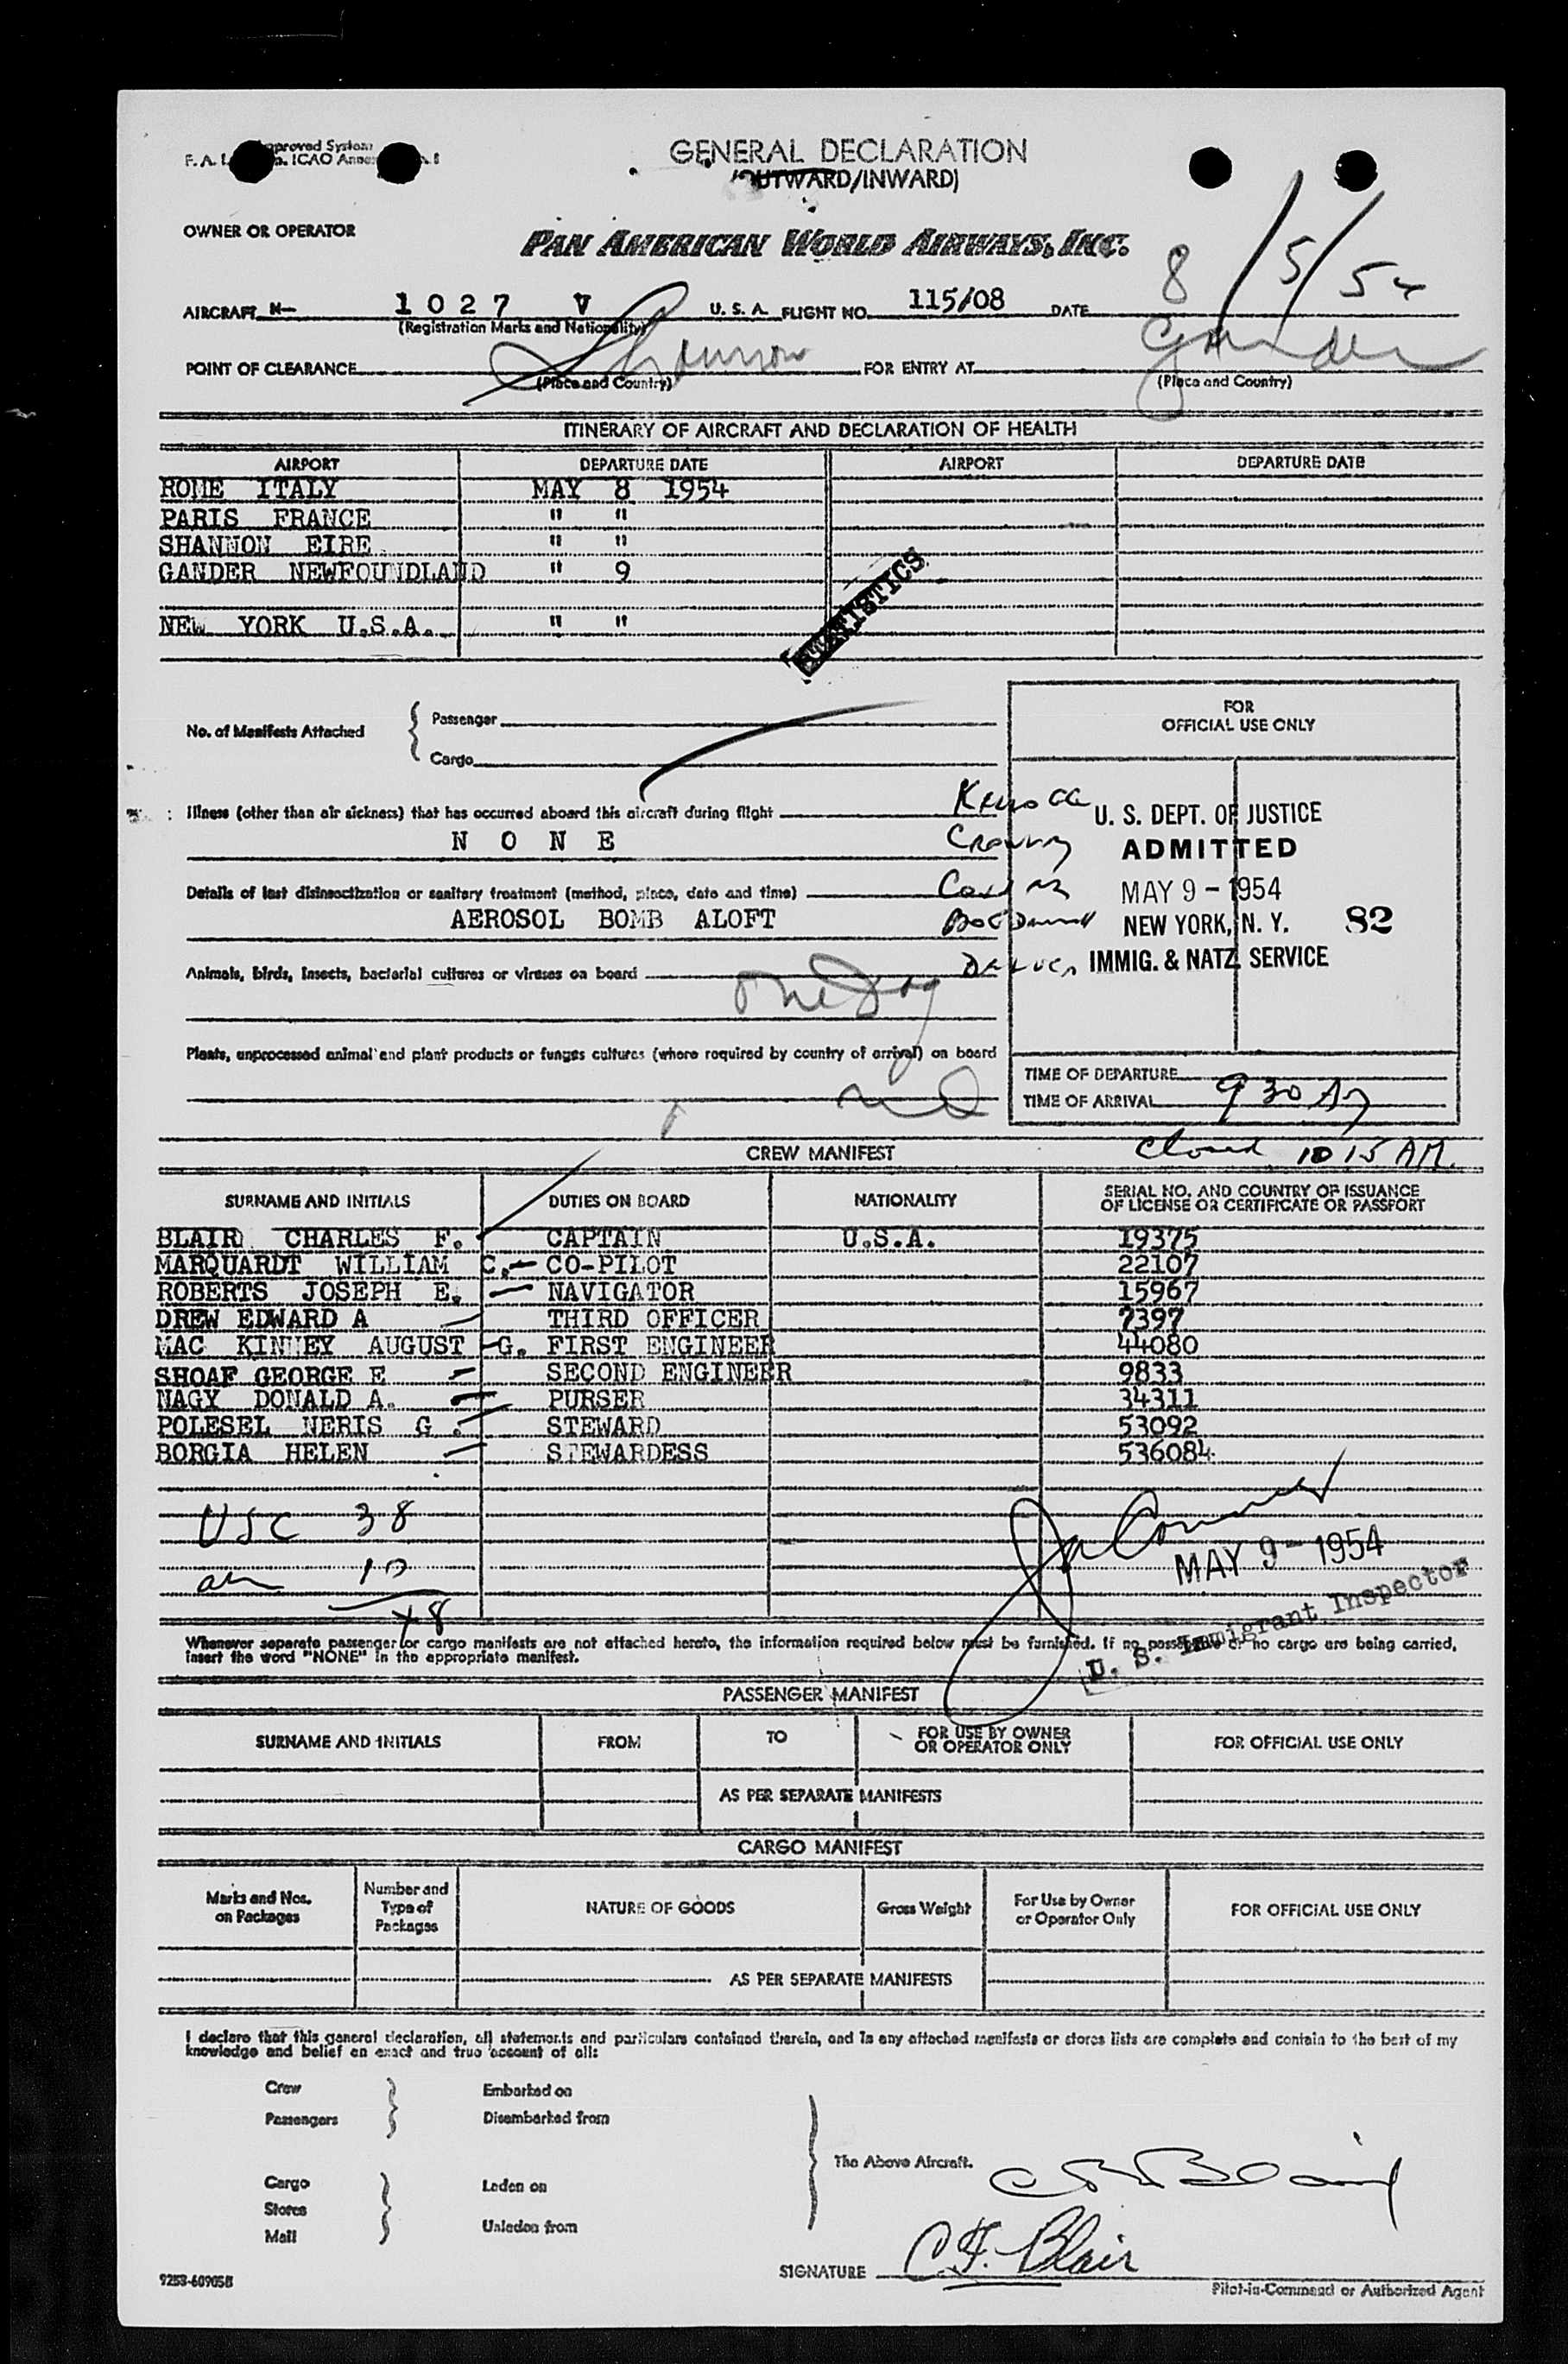 GENERAL DECLARATION
(OUTWARD/INWARD)
OWNER OR OPERATOR
PAN AMERICAN WORLD AIRWAYS, INC.
AIRCRAFT N- 1027 V U. S. A. FLIGHT NO. 115/08 DATE 8/5/54
(Registration Marks and Nationality)
POINT OF CLEARANCE Shannon FOR ENTRY AT Gander
(Place and Country) (Place and Country)
ITINERARY OF AIRCRAFT AND DECLARATION OF HEALTH
AIRPORT DEPARTURE DATE AIRPORT DEPARTURE DATE
ROME ITALY MAY 8 1954
PARIS FRANCE " "
SHANNON EIRE " "
GANDER NEWFOUNDLAND " 9
NEW YORK U.S.A. " "
STATISTICS
No. of Manifests Attached { Passenger
Cargo
FOR
OFFICIAL USE ONLY
Illness (other than air sickness) that has occurred aboard this aircraft during flight
N O N E
Details of last disinsectization or sanitary treatment (method, place, date and time)
AEROSOL BOMB ALOFT
Animals, birds, insects, bacterial cultures or viruses on board
One Dog
Plants, unprocessed animal and plant products or fungus cultures (where required by country of arrival) on board
nil
U. S. DEPT. OF JUSTICE
ADMITTED
MAY 9 - 1954
NEW YORK, N. Y. 82
IMMIG. & NATZ. SERVICE
TIME OF DEPARTURE
TIME OF ARRIVAL 9 30 AM
Closed 10 15 AM.
CREW MANIFEST
SURNAME AND INITIALS DUTIES ON BOARD NATIONALITY SERIAL NO. AND COUNTRY OF ISSUANCE
OF LICENSE OR CERTIFICATE OR PASSPORT
BLAIR CHARLES F. CAPTAIN U.S.A. 19375
MARQUARDT WILLIAM C. CO-PILOT 22107
ROBERTS JOSEPH E. NAVIGATOR 15967
DREW EDWARD A THIRD OFFICER 7397
MAC KINNEY AUGUST G. FIRST ENGINEER 44080
SHOAF GEORGE E SECOND ENGINEER 9833
NAGY DONALD A. PURSER 34311
POLESEL NERIS G. STEWARD 53092
BORGIA HELEN STEWARDESS 536084
USC 38
10
48
MAY 9 - 1954
U. S. Immigrant Inspector
Whenever separate passenger or cargo manifests are not attached hereto, the information required below must be furnished. If no passengers or no cargo are being carried,
insert the word "NONE" in the appropriate manifest.
PASSENGER MANIFEST
SURNAME AND INITIALS FROM TO FOR USE BY OWNER
OR OPERATOR ONLY FOR OFFICIAL USE ONLY
AS PER SEPARATE MANIFESTS
CARGO MANIFEST
Marks and Nos.
on Packages Number and
Type of
Packages NATURE OF GOODS Gross Weight For Use by Owner
or Operator Only FOR OFFICIAL USE ONLY
AS PER SEPARATE MANIFESTS
I declare that this general declaration, all statements and particulars contained therein, and in any attached manifests or stores lists are complete and contain to the best of my
knowledge and belief an exact and true account of all:
Crew Embarked on
Passengers Disembarked from
The Above Aircraft.
Cargo Laden on
Stores
Mail Unladen from
SIGNATURE C.F. Blair
Pilot-in-Command or Authorized Agent
9253-60905B